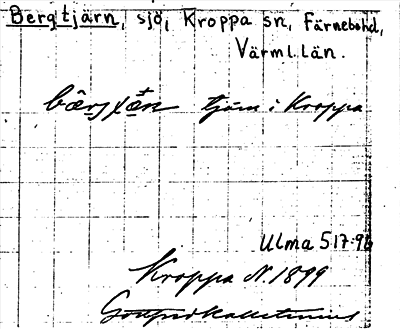 Bergtjärn, sjö, Kroppa sn, Färnebohd,
Värml. län.
tjärn i Kroppa
Ulma 517:96
Kroppa N. 1899